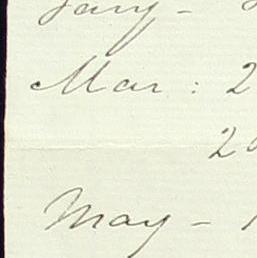 Jany -
Mar : 2
2
May - 1